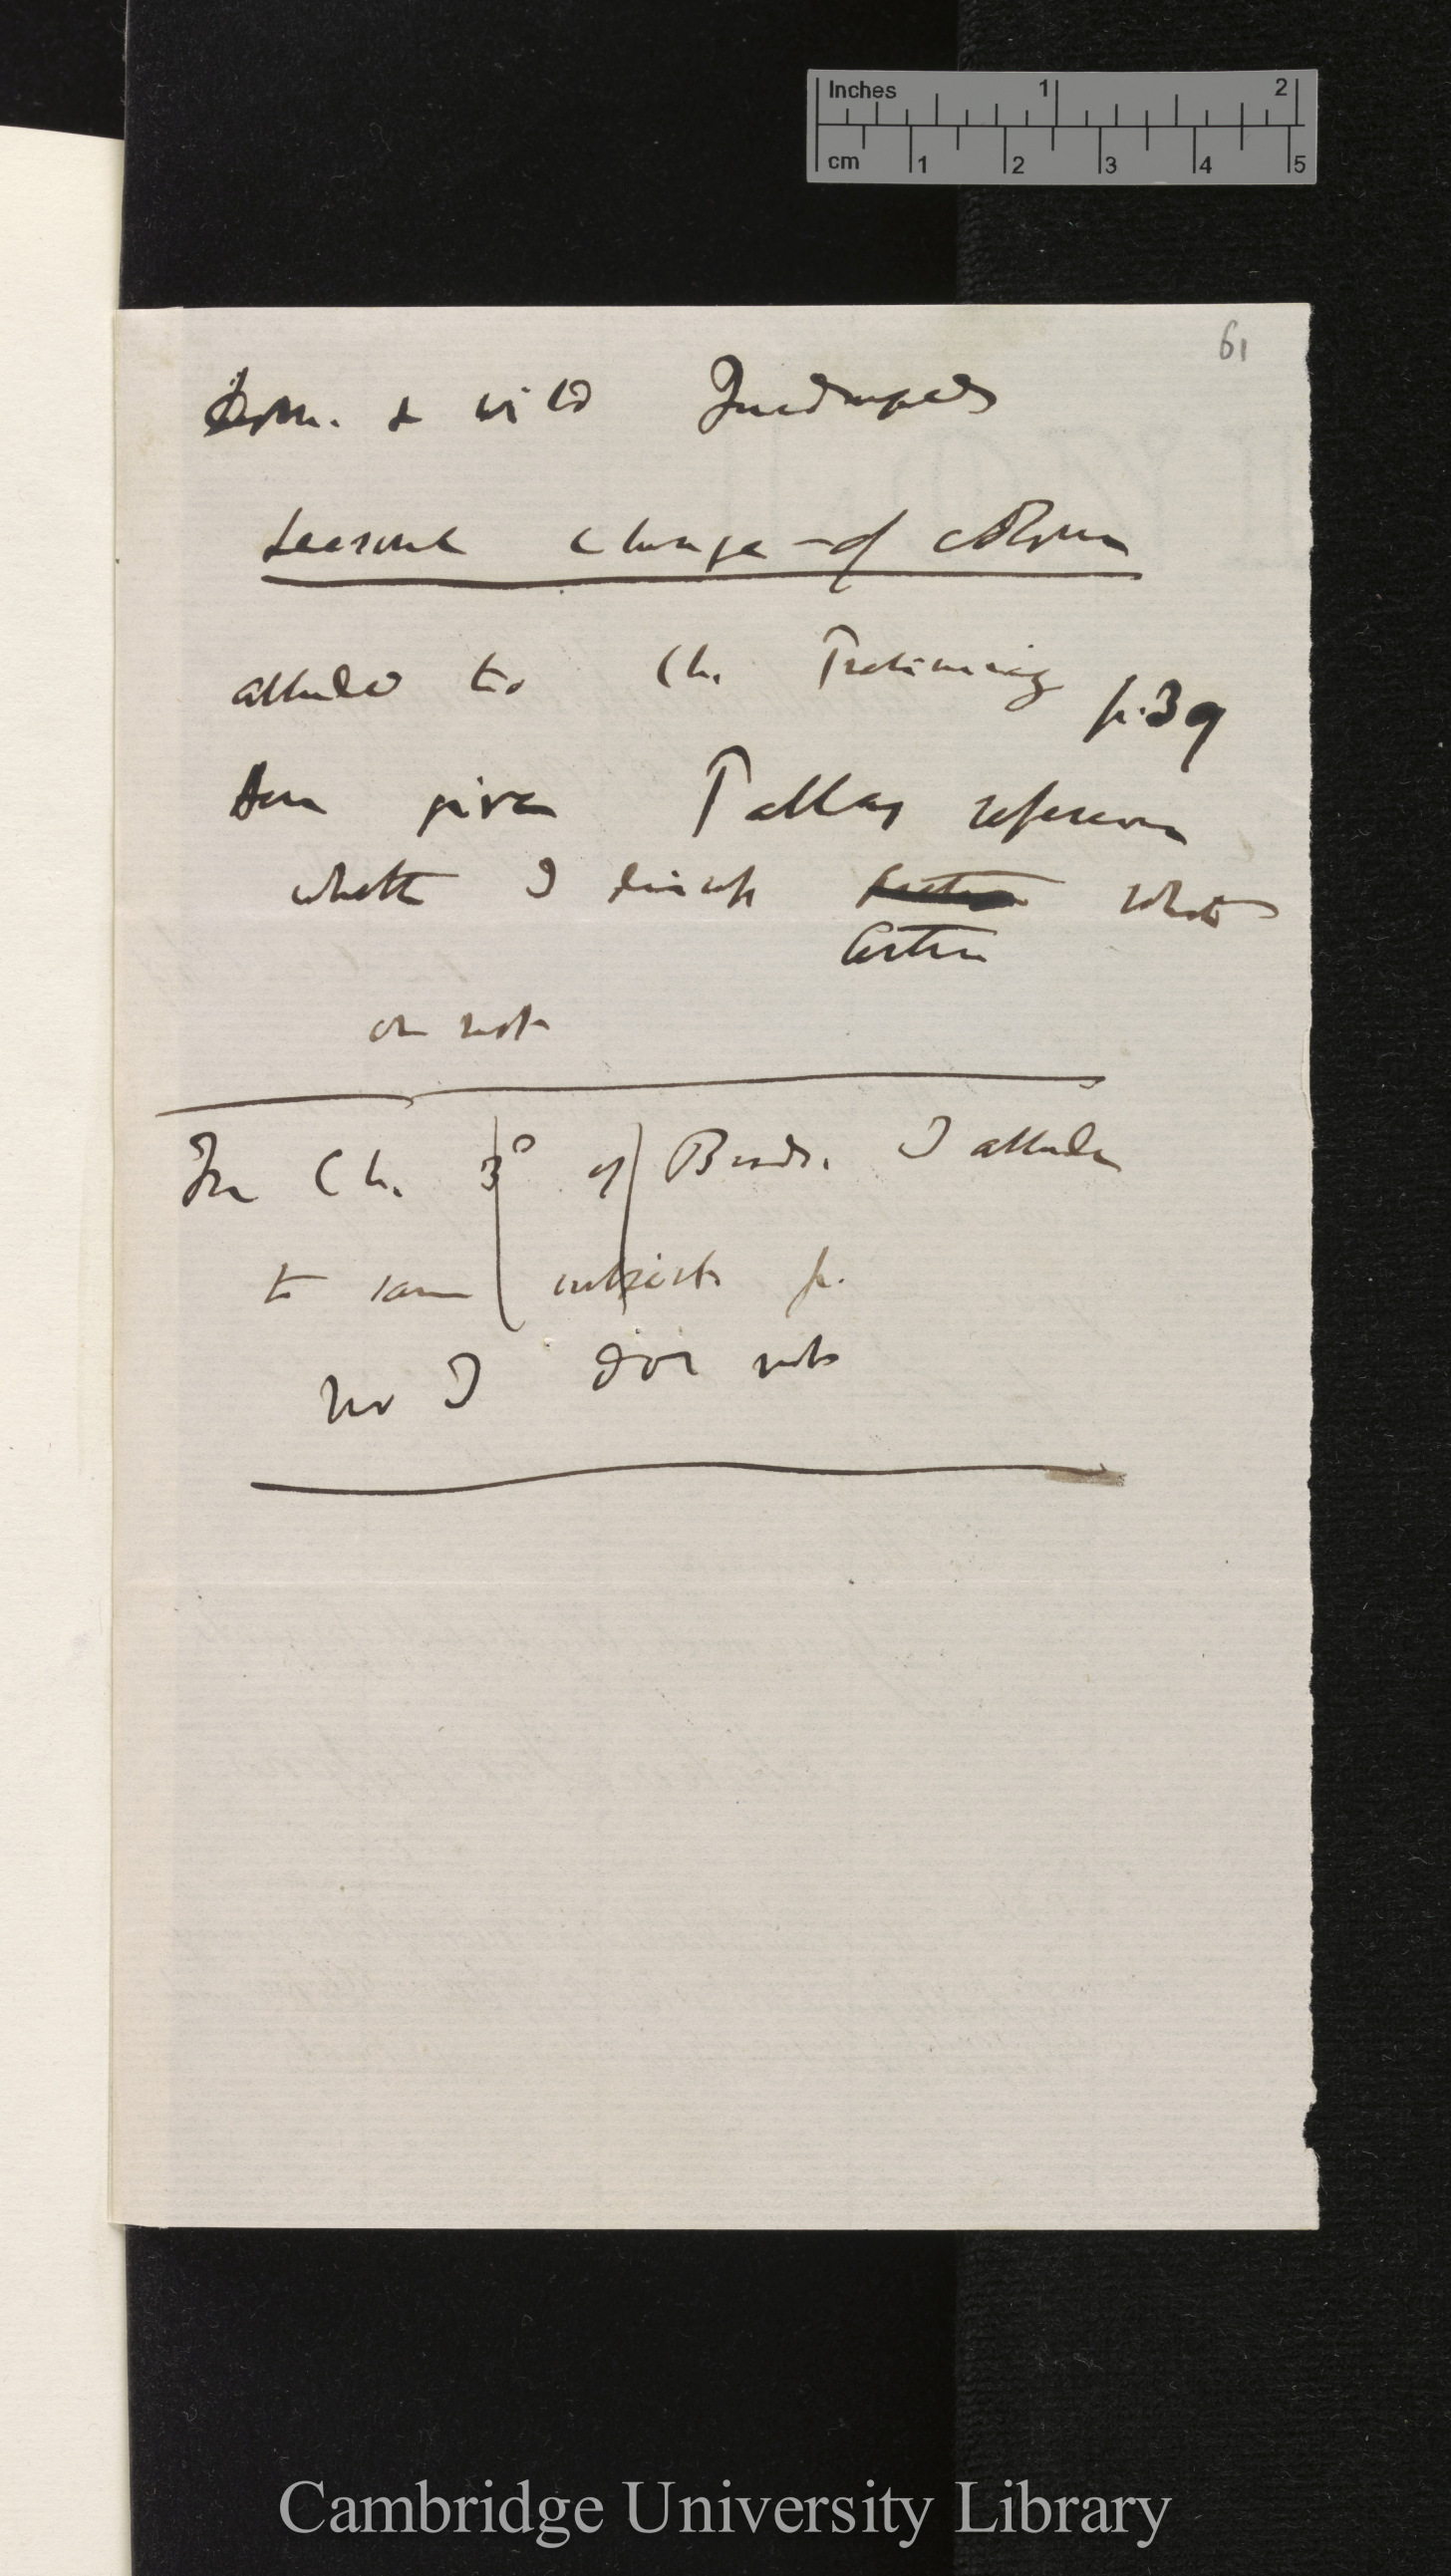 Inches 1 2
cm 1 2 3 4 5
61
Dom. & wild Quadrupeds
Seasonal change of colour
alluded to Ch. Preliminary p. 39
given Pallas reference
whether I discuss what
or not
In Ch. 3° of Birds. I allude
to same subject p.
No I do not
Cambridge University Library